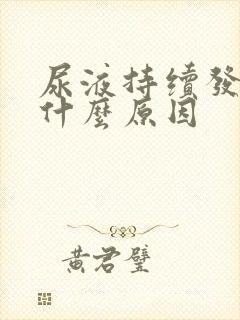 尿液持續發
什麼原因
黃君璧